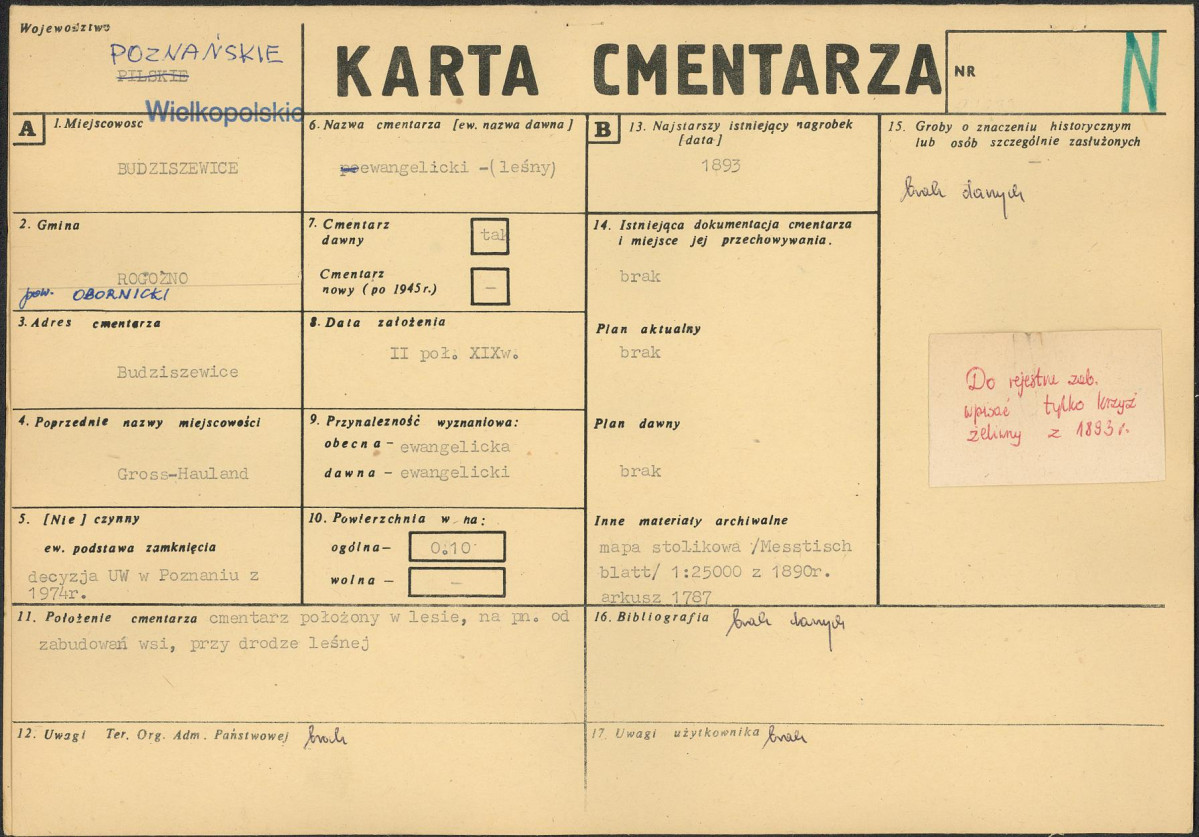 Województwo
POZNAŃSKIE
PILSKIE
Wielkopolskie
KARTA CMENTARZA
NR
N
A
1. Miejscowosc
BUDZISZEWICE
2. Gmina
ROGOŹNO
pow. OBORNICKI
3. Adres cmentarza
Budziszewice
4. Poprzednie nazwy miejscowości
Gross-Hauland
5. [Nie] czynny
ew. podstawa zamknięcia
decyzja UW w Poznaniu z
1974r.
6. Nazwa cmentarza [ew. nazwa dawna]
ewangelicki -(leśny)
7. Cmentarz
dawny
tak
Cmentarz
nowy (po 1945 r.)
-
8. Data założenia
II poł. XIXw.
9. Przynależność wyznaniowa:
obecna - ewangelicka
dawna - ewangelicki
10. Powierzchnia w ha:
ogólna - 0.10
wolna - -
B
13. Najstarszy istniejący nagrobek
[data]
1893
14. Istniejąca dokumentacja cmentarza
i miejsce jej przechowywania.
brak
Plan aktualny
brak
Plan dawny
brak
Inne materiały archiwalne
mapa stolikowa /Messtisch
blatt/ 1:25000 z 1890r.
arkusz 1787
15. Groby o znaczeniu historycznym
lub osób szczególnie zasłużonych
-
brak danych
Do rejestru zab.
wpisać tylko krzyż
żeliwny z 1893 r.
11. Położenie cmentarza cmentarz położony w lesie, na pn. od
zabudowań wsi, przy drodze leśnej
16. Bibliografia brak danych
12. Uwagi Ter. Org. Adm. Państwowej brak
17. Uwagi użytkownika brak